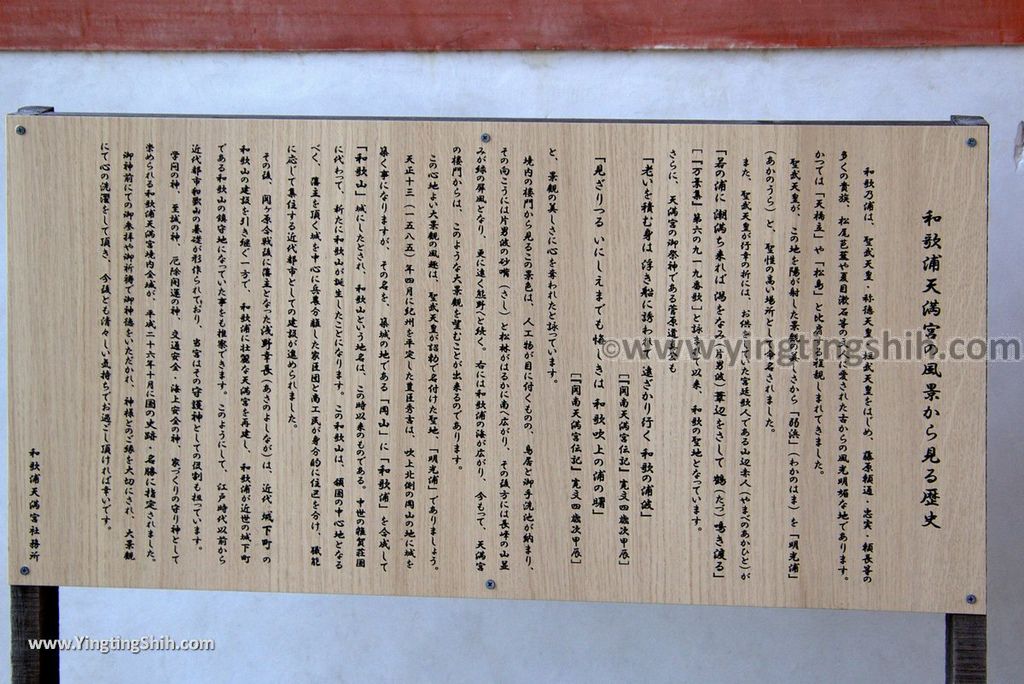 和歌浦天満宮の風景から見る歴史
和歌乃浦は、聖武天皇・称徳天皇・桓武天皇をはじめ、藤原頼通・忠実・頼長等の
多くの貴族、松尾芭蕉や夏目漱石等の文人に愛された古からの風光明媚な地であります。
かつては「天橋立」や「松島」と比肩する程親しまれてきました。
聖武天皇が、この地を陽が射した景観の美しさから「弱浜」(わかのはま)を「明光浦」
(あかのうら)と、聖性の高い場所として命名されました。
また、聖武天皇が行幸の折には、お供をしていた宮廷歌人である山辺赤人(やまべのあかひと)が
「若の浦に 潮満ち来れば 潟をなみ(片男波) 葦辺をさして 鶴(たづ)鳴き渡る」
[『万葉集』第六の九一九番歌]と詠まれて以来、和歌の聖地となっています。
さらに、天満宮の御祭神である菅原道真公も
「老いを積む身は 浮き船に誘われて 遠ざかり行く 和歌の浦波」
[『関南天満宮伝記』寛文四歳次甲辰]
「見ざりつる いにしえまでも 悔しきは 和歌吹上の浦の曙」
[『関南天満宮伝記』寛文四歳次甲辰]
と、景観の美しさに心を奪われたと詠っています。
境内の楼門から見るこの景色は、人工物が目に付くものの、鳥居と御手洗池が納まり、
その向こうには片男波の砂嘴(さし)と松林がはるかに南へ広がり、その後方には長峰の山並
みが緑の屏風となり、更に遠く熊野へと続く。右には和歌浦の海が広がり、今もって、天満宮
の楼門からは、このような大景観を望むことが出来るのであります。
この心地よい大景観の風趣は、聖武天皇が詔勅で名付けた聖地、「明光浦」でありましょう。
天正十三(一五八五)年四月に紀州を平定した豊臣秀吉は、吹上北側の岡山の地に城を
築く事になりますが、その名を、築城の地である「岡山」に「和歌浦」を合成して
「和歌山」城にしたとされ、和歌山という地名は、この時以来のものである。中世の雑賀荘園
に代わって、新たに和歌山が誕生したことになります。この和歌山は、領国の中心地となる
べく、藩主を頂く城を中心に兵農分離した家臣団と商工民が身分的に住区を分け、職能
に応じて集住する近代都市としての建設が進められました。
その後、関ヶ原合戦後に藩主となった浅野幸長(あさのよしなが)は、近代“城下町”の
和歌山の建設を引き継ぐ一方で、和歌浦に壮麗な天満宮を再建し、和歌浦が近世の城下町
である和歌山の鎮守地になっていた事をも推察できます。このようにして、江戸時代以前から
近代都市和歌山の基礎が形作られており、当宮はその守護神としての役割も担っています。
学問の神、至誠の神、厄除開運の神、交通安全・海上安全の神、家づくりの守り神として
崇められる和歌浦天満宮境内全域が、平成二十六年十月に国の史跡・名勝に指定されました。
御神前にての御参拝や御祈祷で御神徳をいただかれ、神様とのご縁を大切にされ、大景観
にて心の洗濯をして頂き、今後とも清々しい気持ちでお過ごし頂ければ幸いです。
和歌浦天満宮社務所
©www.yingtingshih.com
www.YingtingShih.com